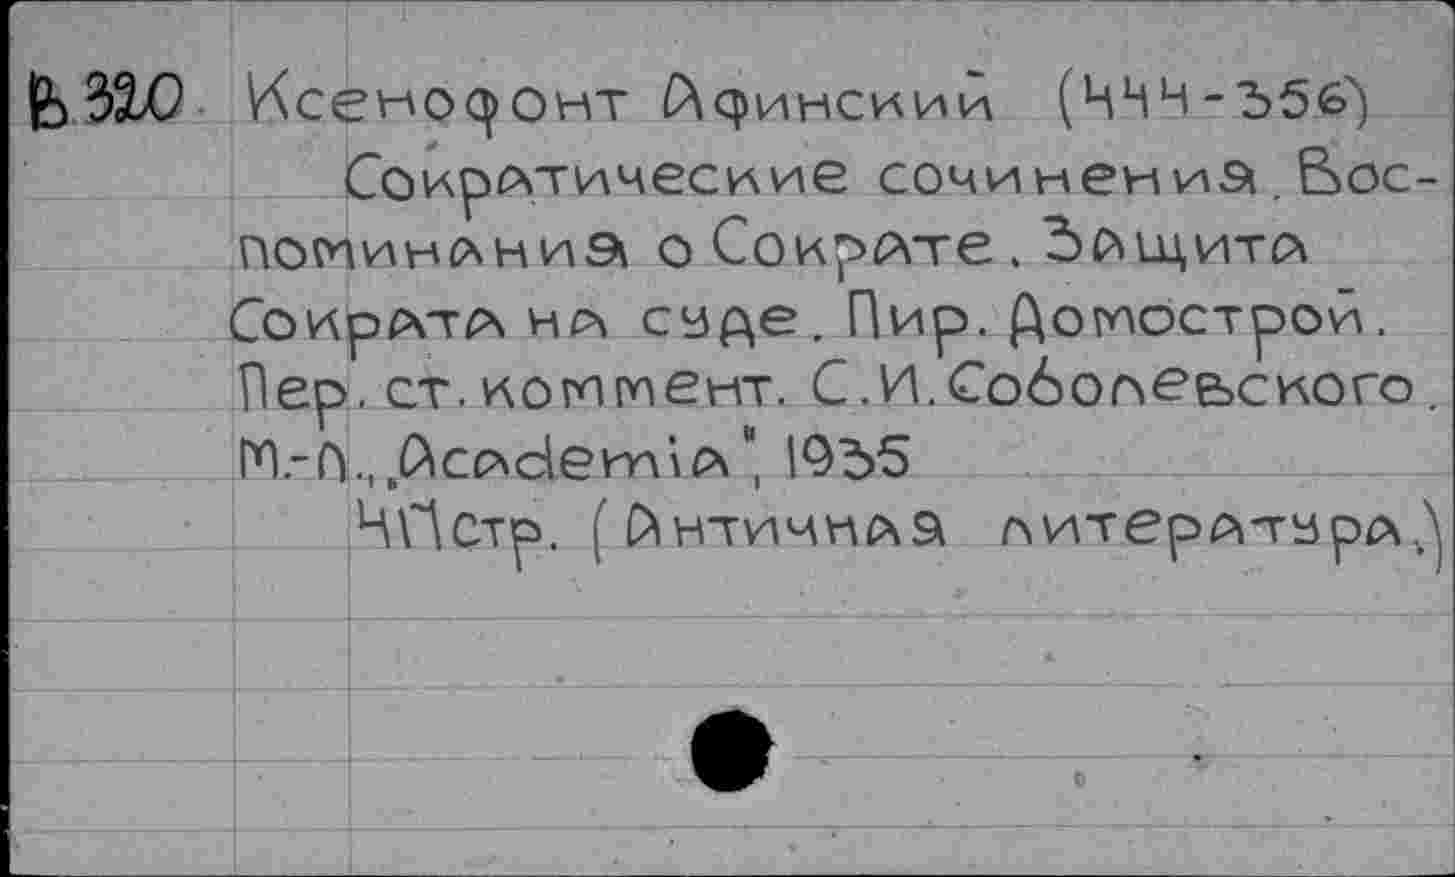 В 320 Ксенофонт Афинский (444-356)
Сократические сочинения. Вос-
поминания о Сократе. Защита
Сократа на суде. Пир. Домострой.
Пер. ст. коммент. С.И. Соболевского.
М.-Л., „Academia", 1935
417 стр. (Античная литература.)